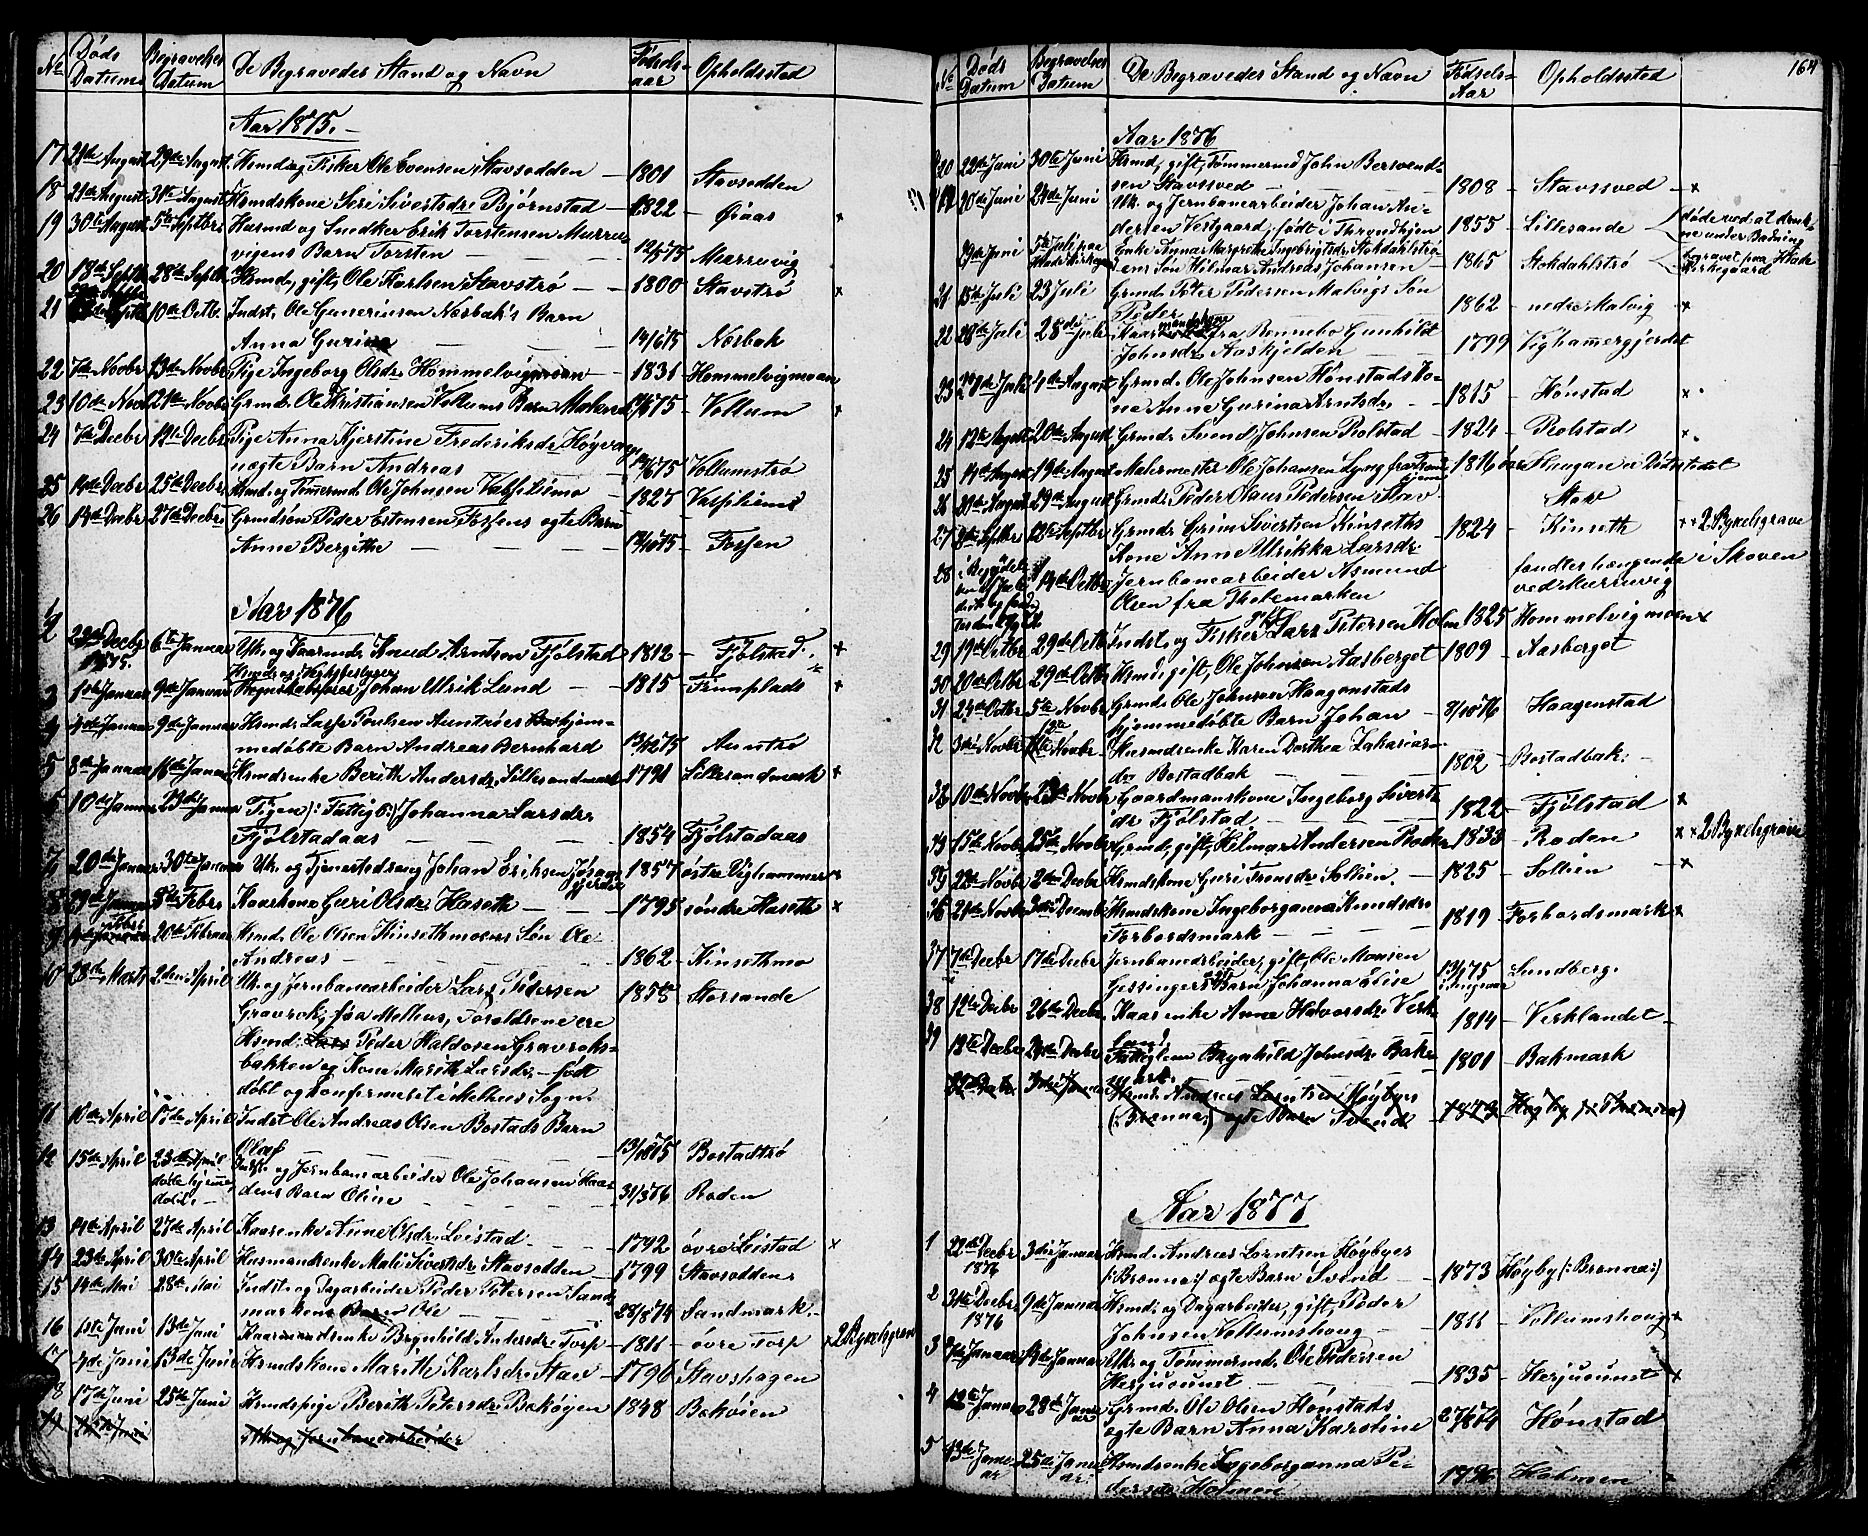 No Døds Datum Begravelses Datum De Begravedes Stand og Navn Fødsels-aar Opholdssted
Aar 1875.
17 21de August 29de August Hsmd. og Fisker Ole Evensen Stavsodden 1801 Stavsodden
18 21de August 31te August Hsmdskone Seri Sivertsdr. Bjørnstad 1822 Øiaas x
19 30te August 5te Septbr. Husmd og Snedker Erik Torstensen Murru-
vigens Barn Torsten 12/5 75 Murruvig
20 18de Septbr 28de Septbr Hsmd., gift, Ole Karlsen Stavstrø 1800 Stavstrø x
21 10de Octb. Indst. Ole Guneriusen Næsbak's Barn
Anna Gurina 14/6 75 Næsbak
22 7de Novbr 13de Novbr Pige Ingeborg Olsdr. Hommelvigmoan 1831 Hommelvigmoan
23 10de Novb 21de Novbr Grmd. Ole Kristiansen Vollums Barn 75 Vollum x
24 7de Decbr 12te Decbr Pige Anna Kjerstine Frederiksdr. Høyvag,
uægte Barn Andreas 75 Vollumstrø
25 14de Decbr 25de Decbr Hsmd. og Tømermd. Ole Johnsen Valslimo 1827
26 19de Decbr 27de Decbr. Grmdsøn Peder Estensen Fossens ægte Barn
Anne Bergithe 75 Fossen
Aar 1876
2 29de Decbr 1875. 6te Januar Uk. og Faarmd. Knud Arntsen Fjølstad 1812 Fjølstad. x
Hsmd. og
3 1ste Januar 9de Januar Regnskabsfører, Johan Ulrik Lund 1815 x
4 4de Januar 9de Januar Hsmd. Lars Poulsen hjem-
medøbte Barn Andreas Bernhard 75
5 8de Januar 16de Januar Hsmdenke Berith Andersdr. Lillesandmark 1791 Lillesandmark x
6 10de Januar 23de Januar Pigen (: Fattig :) Johanna Larsdr.
Fjølstadaas 1854 Fjølstadaas
7 20de Januar 30te Januar Uk. og Tjenestedreng Johan Eriksen 1857 østre Vighammer
8 29de Januar 8de Febr. Kaarkone Guri Olsdr. Haseth 1795 søndre Haseth x
9 20de Februar Hsmd. Ole Olsen Kinsethmoens Søn Ole
Andreas 1862 Kinsethmo
10 28de Marts 2den April Uk. og Jernbanearbeider Lars Pedersen 1858 Storsande
Gravrok, fra Melhus, Forældrene ere
Hsmd. Peder Haldosen Gravroks-
bakken og Kone Marith Larsdr. - født
døbt og konfirmeret i Melhus Sogn.
11 10de April 17de April Indst. Ole Andreas Olsen Bostads Barn
Olaf 13/10 75 Bostadtrø
12 15de April 23de April Indst. og Jernbanearbeider Ole Johansen
dens Barn Oline 31/3 76 Roden
13 14de April 27de April Kaarenke Anne Olsdr. Leistad 1792 øvre Leistad x
14 23de April 30te April Husmandenke Mali Sivertsdr. Stavsodden 1799 Stavsodden
15 14de Mai 28de Mai Indst. og Dagarbeider Peder Petersen Sand-
markens Barn Ole 28/1 1874 Sandmark.
16 1ste Juni 13de Juni Kaarmandsenke Brynhild Andersdr. Torp 1811 øvre Torp x 2 Rykelsgrave
17 4de Juni 13de Juni Hsmdskone Marith Karlsdr. Stav 1796 Stavshagen
18 17de Juni 25de Juni Hsmdspige Berith Petersdr. Bakøyen 1848 Bakøien
Uk og Jernbanearbeider
No Døds Datum Begravelses Datum De Begravedes Stand og Navn Fødsels-Aar Opholdssted 164
Aar 1876
22de Juni 30te Juni Hsmd, gift, Tømmermd John Bersvend-
sen Stavsved 1808 Stavssved x
20de Juni 24de Juni Uk. og Jernbanearbeider Johan An-
dersen Vestgaard, født i Throndhjem 1855 Lillesande døde ved at druk-
ne under Badning
29de Juni 5te Juli Enke Anne Margrethe Ingebrigtsdr. Stokdahlstrø-
ens Søn Hilmar Andreas Johansen 1865 Stokdahlstrø begravet paa Hlade Kirkegaard
21 15de Juli 23 Juli Grmd. Peter Pedersen Malvigs Søn
Peder 1862 nedre Malvig x
22 28de Juli fra Bonnebo Gunhild
Johnsdr. Aaskjelden 1799 Vighammergjerdet
23 27de Juli 4de August Grmd. Ole Johnsen Hønstads Ko-
ne Anne Gurina Arntsdr. 1815 Hønstad x
24 12te August 20de August Grmd. Svend Johnsen Rolstad 1824 Rolstad x
25 14de August 19de August Malermester Ole Johansen Lyng 1816
26 29de August Grmd. Peder Olaus Pedersen Stav Stav
27 8de Septbr 12te Septbr Grmd. Grim Sivertsen Kinseths 1824 Kinseth x x 2 Rykelsgrave
Kone Anne Ulrikka Larsdr.
28 14de Octb. Jernbanearbeider Asmund fandtes hængende i Skoven
Olsen fra Thelemarken ved Murruvig
29 19de Octbr 29de Octb Indst. og Fisker Lars Petersen Holm 1825 Hommelvigmoen x
30 20de Octbr 29de Octbr Hsmd, gift, Ole Johnsen Aasberget 1809 Aasberget
31 24de Octbr 5te Novbr Grmd. Ole Johnsen Haagenstads
hjemmedøbte Barn Johan 8/10 76 Haagenstad
32 3die Novbr Novbr. Husmdenke Karen Dorthea Zakarias-
dr. Bostadbak 1802 Bostadbak.
10de Novbr Novbr Gaardmandskone Ingeborg Siverts-
dr. Fjølstad 1822 Fjølstad x
15de Novbr 25de Novbr Grmd, gift, Hilmar Andersen Roden 1833 Roden x x 2 Rykelsgrave
35 23de Novbr 2den Decbr Hsmdskone Guri Tronsdr. Sollien. 1825 Sollien x
36 21de Novbr 3die Decemb Hsmdskone Ingeborganna Knudsdr.
Forbordsmark 1819 Forbordsmark x
37 7de Decbr 17de Decbr Jernbanearbeider, gift, Ole Monsen
Gessingers Barn Johanna Elise 13/1 75 Sundberg.
38 19de Decbr 26de Decbr Kaarenke Anne Halvorsdr. Verk-
land 1814 Verklandet
39 19de Decbr Decbr Fattiglem Bagnhild Johnsdr. Bak-
mark. 1801 Bakmark
3die Januar Hsmd. Andreas Lorntsen Høybyes
(: Brenna :) ægte Barn Svend 1873 Høyby (: Brenna :)
Aar 1877
1 22de Decbr 1876 3die Januar Hsmd. Andreas Lorntsen Høybyes
(: Brenna :) ægte Barn Svend 1873 Høyby (: Brenna :)
2 31te Decbr 1876 9de Januar Hsmd. og Dagarbeider, gift, Peder
Johnsen Vollumshoug 1811 Vollumshoug x
3 Januar Januar Uk. og Tømmermd. Ole Pedersen
Herjuunet 1835 Herjuunet x
4 12te Januar 28de Januar Grmd. Ole Olsen Hønstads
ægte Barn Anna Karstine Hønstad
5 13de Januar 25de Januar. Hsmdsenke Ingeborganna Pe-
dersdr. Holmen 1796 Holmen